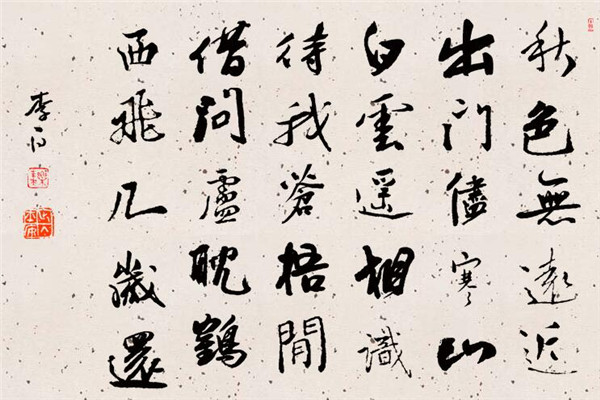 秋色無遠近
出门儘寒山
白雲遥相識
待我蒼梧間
借问盧耽鶴
西飛几歲還
李